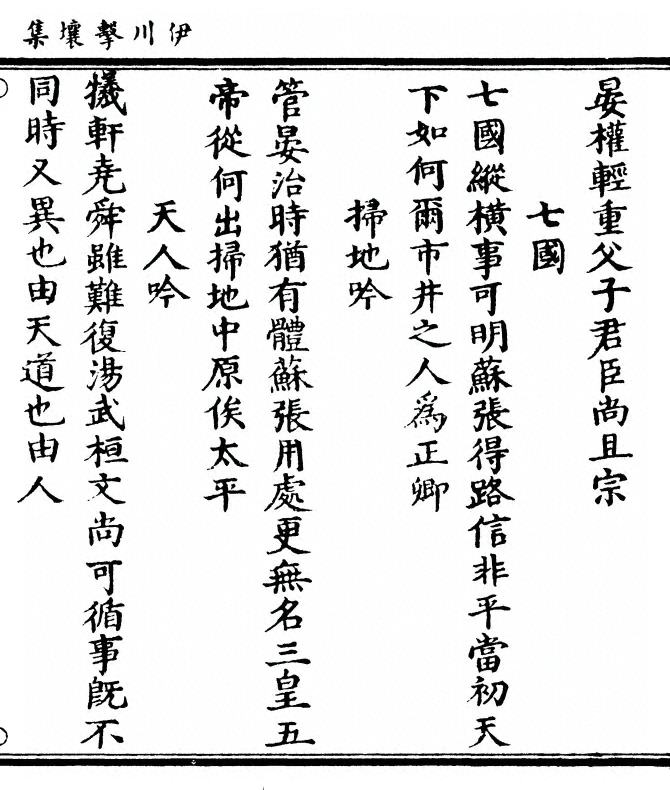 伊川擊壤集
晏權輕重父子君臣尚且宗
七國
七國縱橫事可明蘇張得路信非平當初天
下如何爾市井之人為正卿
掃地吟
管晏治時猶有體蘇張用處更無名三皇五
帝從何出掃地中原俟太平
天人吟
犧軒堯舜雖難復湯武桓文尚可循事旣不
同時又異也由天道也由人